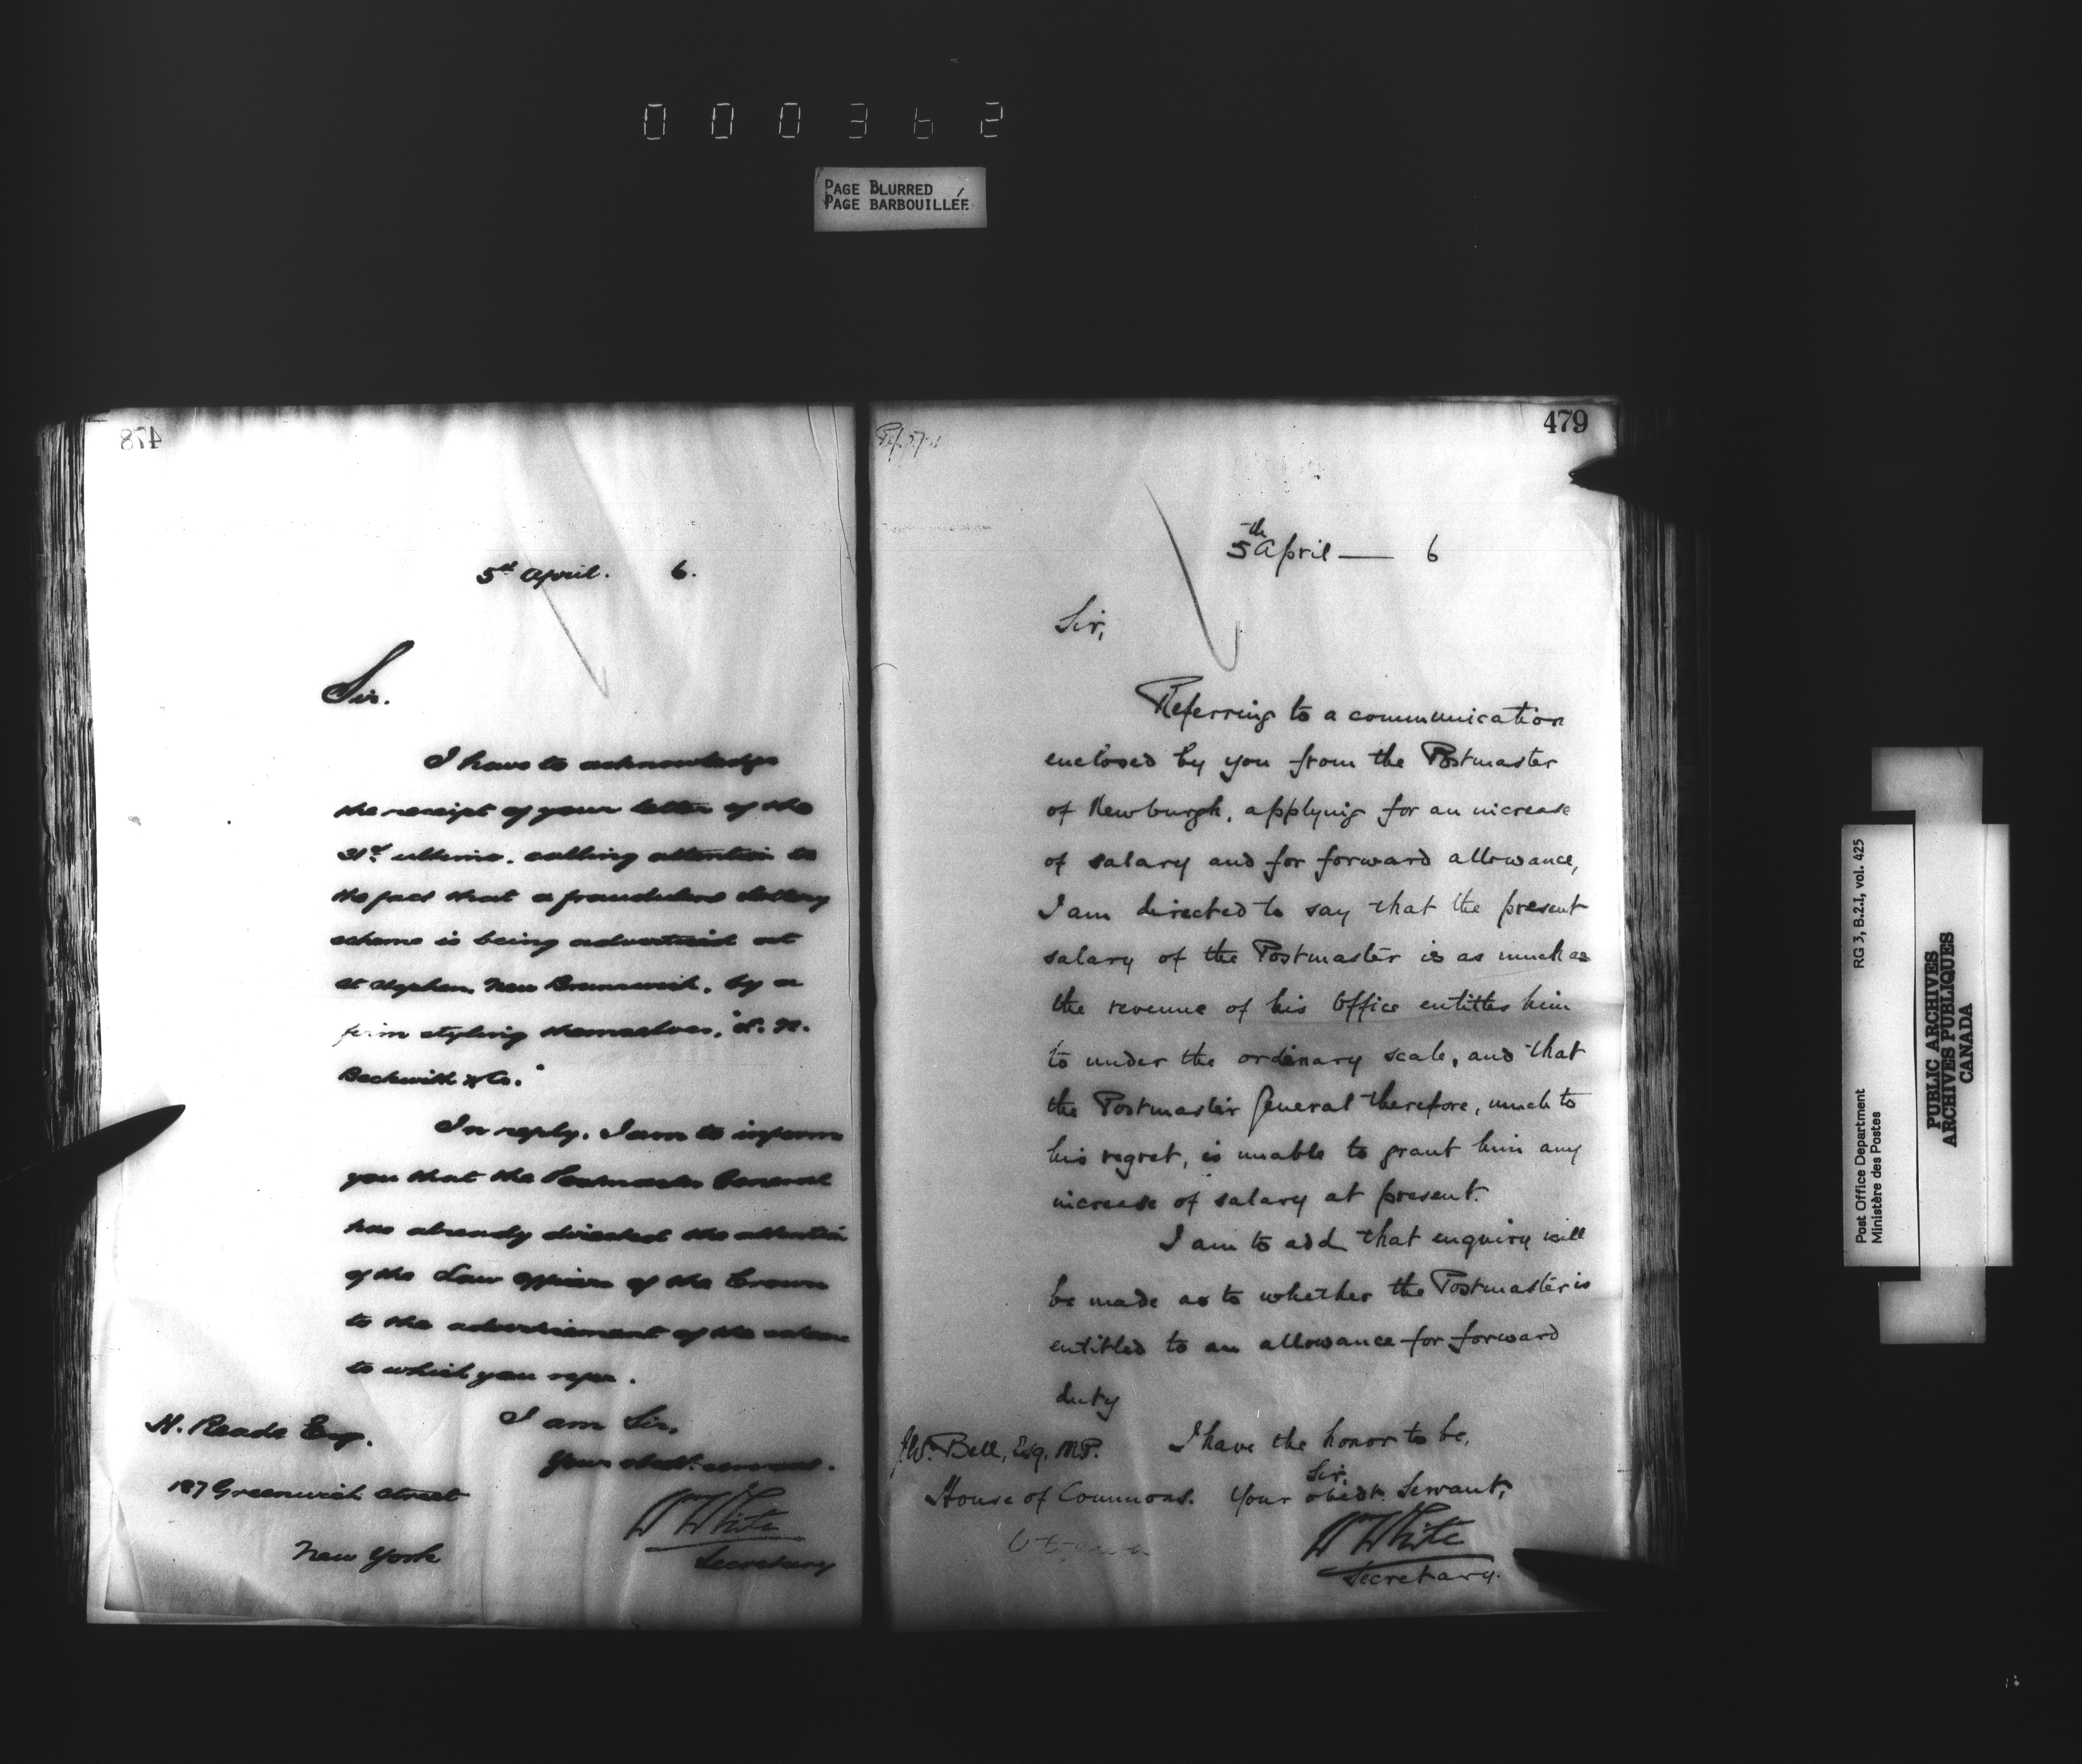 000362
PAGE BLURRED
PAGE BARBOUILLÉE
478
5th April. 6.
Sir.
I have to acknowledge
the receipt of your letter of the
31st ultimo, calling attention to
the fact that a fraudulent lottery
scheme is being advertised at
St Stephen, New Brunswick, by a
firm styling themselves,
Beckwith & Co."
In reply, I am to inform
you that the Postmaster General
has already directed the attention
of the Law Officers of the Crown
to the advertisement of the scheme
to which you refer.
I am Sir,
Your obedt. servant.
H. Reade Esq.
187 Greenwich Street
New York
W White
Secretary
479
5th April — 6
Sir,
Referring to a communication
enclosed by you from the Postmaster
of Newburgh, applying for an increase
of salary and for forward allowance,
I am directed to say that the present
salary of the Postmaster is as much as
the revenue of his Office entitles him
to under the ordinary scale, and that
the Postmaster General therefore, much to
his regret, is unable to grant him any
increase of salary at present.
I am to add that enquiry will
be made as to whether the Postmaster is
entitled to an allowance for forward
duty
I have the honor to be,
Sir,
Your obedt. Servant,
J.W. Bell, Esq, M.P.
House of Commons.
Ottawa
W White
Secretary.
RG 3, B.2.I, vol. 425
Post Office Department
Ministère des Postes
PUBLIC ARCHIVES
ARCHIVES PUBLIQUES
CANADA